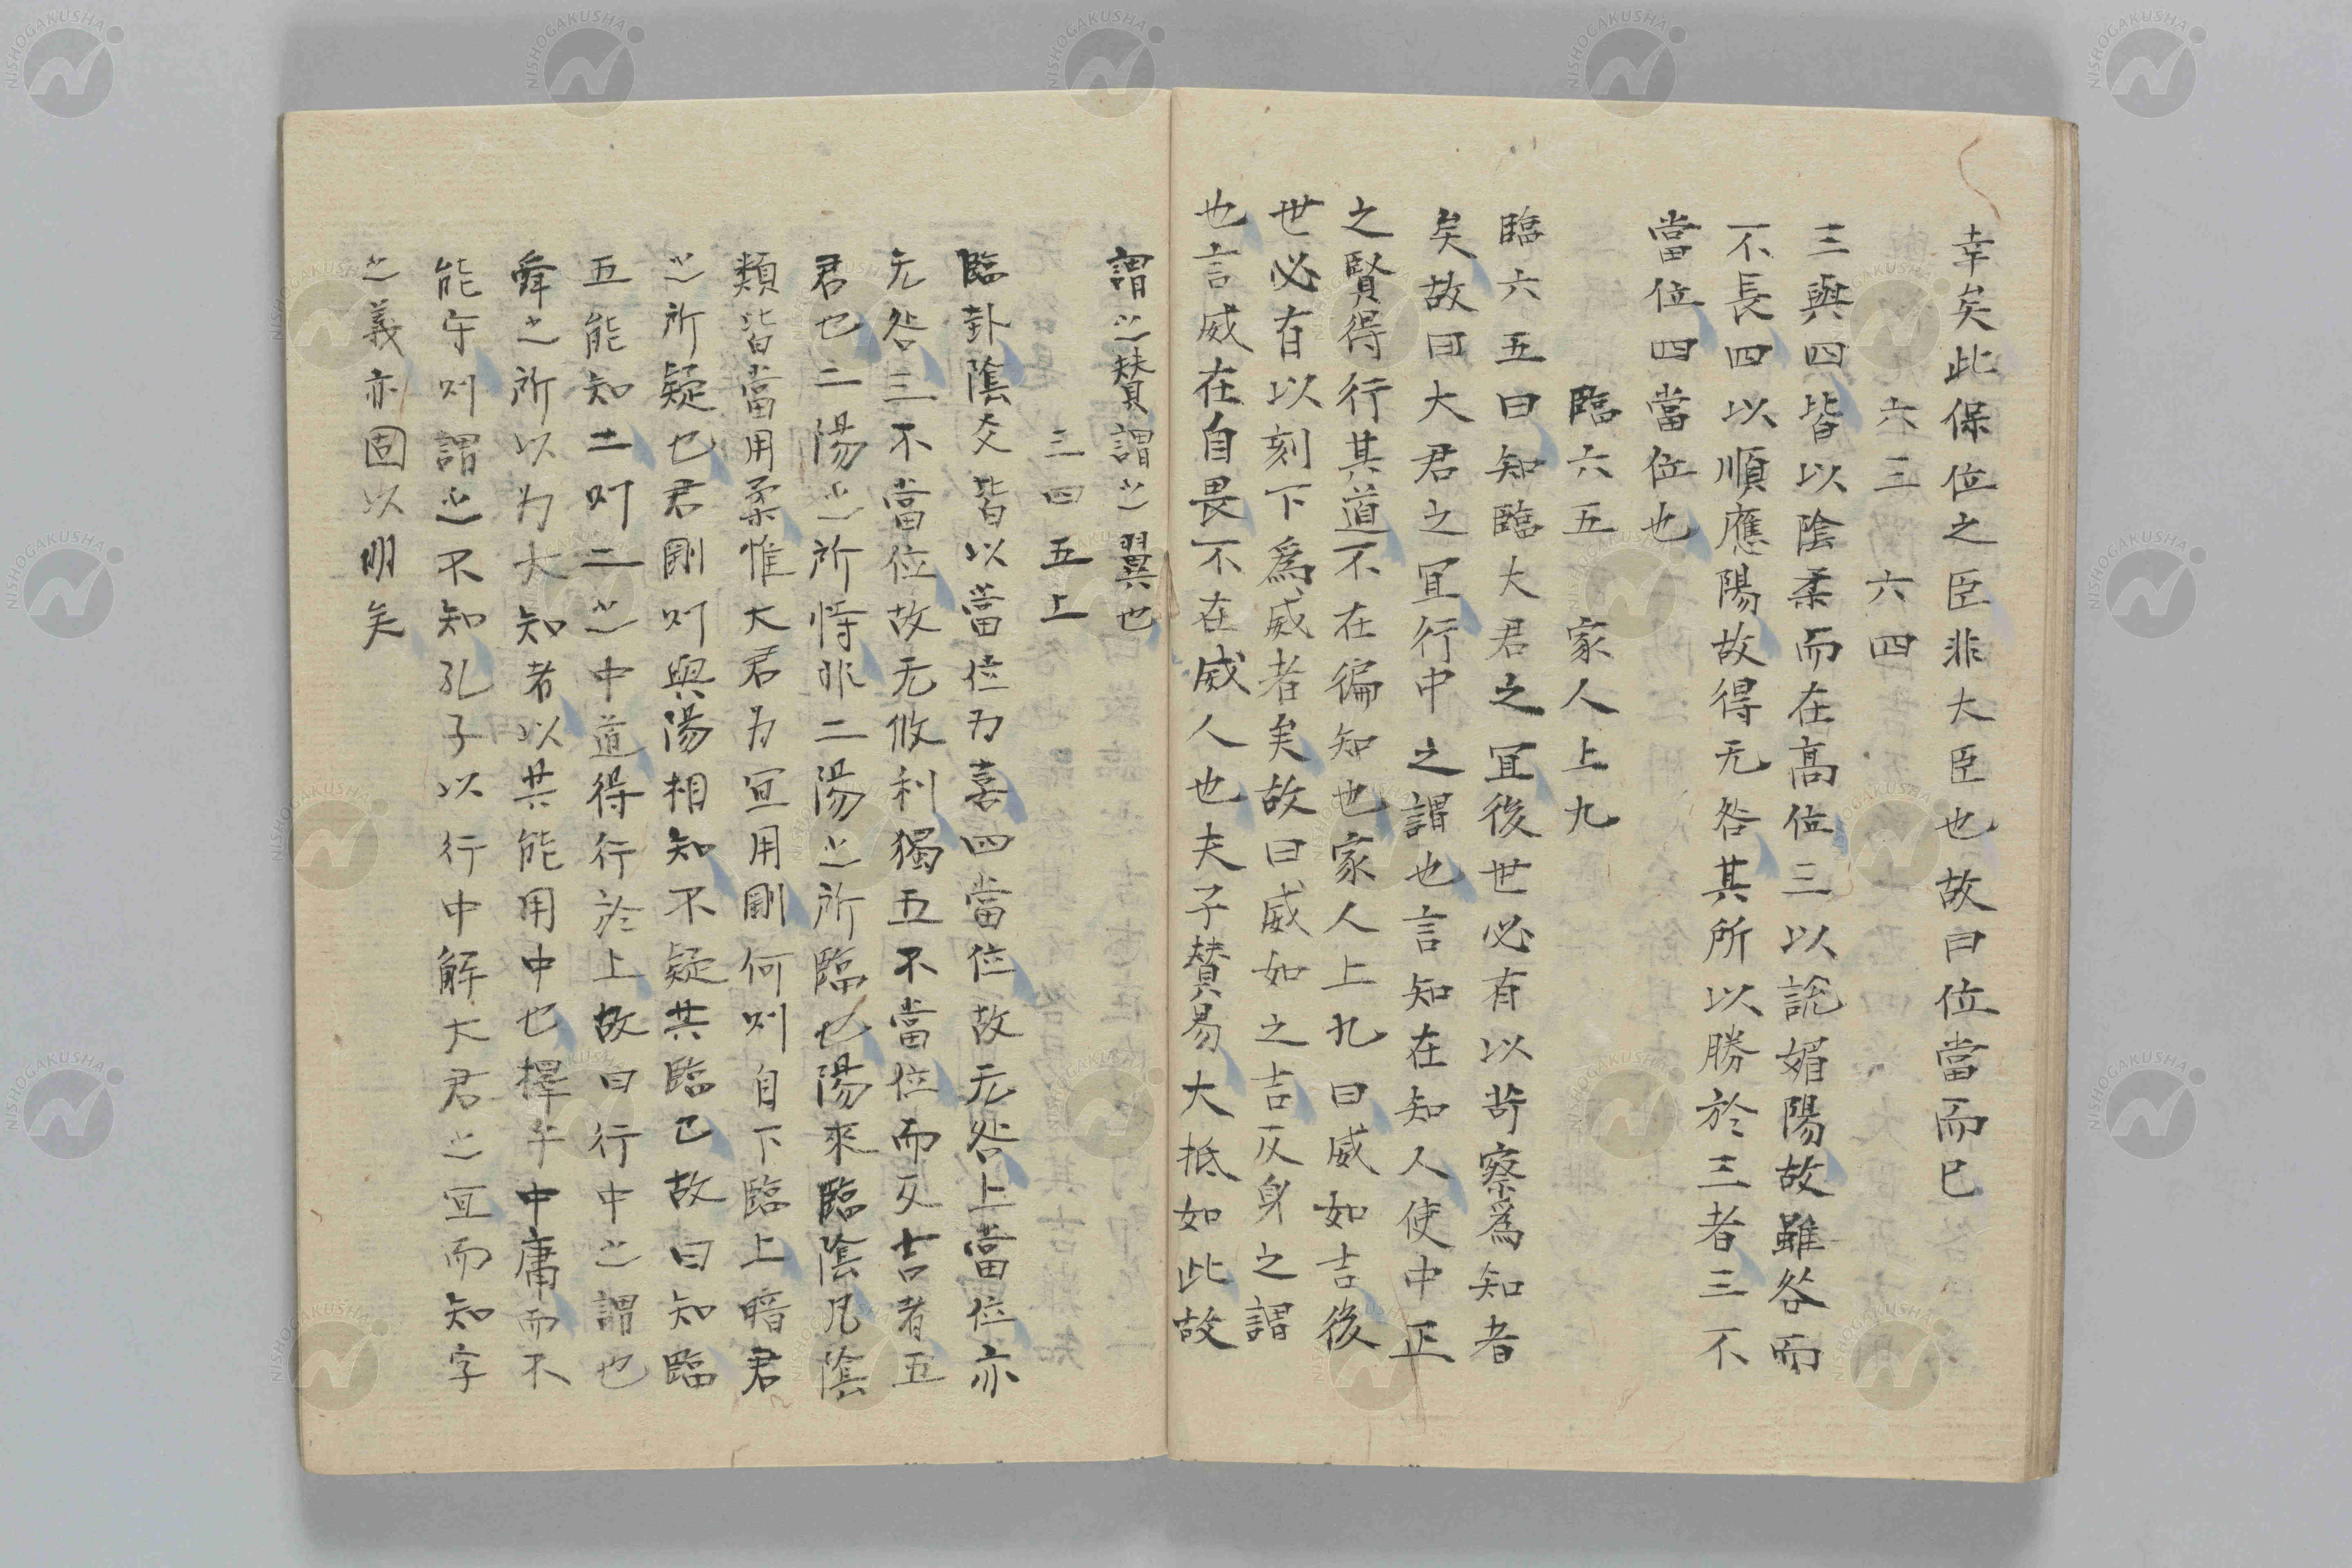 幸矣此保位之臣非大臣也故曰位當而已
六三 六四
三與四皆以陰柔而在高位三以說媚陽故雖咎而
不長四以順應陽故得无咎其所以勝於三者三不
當位四當位也
臨六五 家人上九
臨六五曰知臨大君之宜後世必有以苛察爲知者
矣故曰大君之宜行中之謂也言知在知人使中正
之賢得行其道不在徧知也家人上九曰威如吉後
世必有以刻下爲威者矣故曰威如之吉反身之謂
也言威在自畏不在威人也夫子賛易大抵如此故
謂之賛謂之翼也
三四五上
臨卦陰爻皆以當位为善四當位故无咎上當位亦
无咎三不當位故无攸利獨五不當位而反吉者五
君也二陽之所恃非二陽之所臨也陽來臨陰凡陰
類皆當用柔惟大君为宜用剛何则自下臨上暗君
之所疑也君剛则與陽相知不疑其臨己故曰知臨
五能知二则二之中道得行於上故曰行中之謂也
舜之所以为大知者以其能用中也擇乎中庸而不
能守则謂之不知孔子以行中解大君之宜而知字
之義亦固以明矣
NISHOGAKUSHA